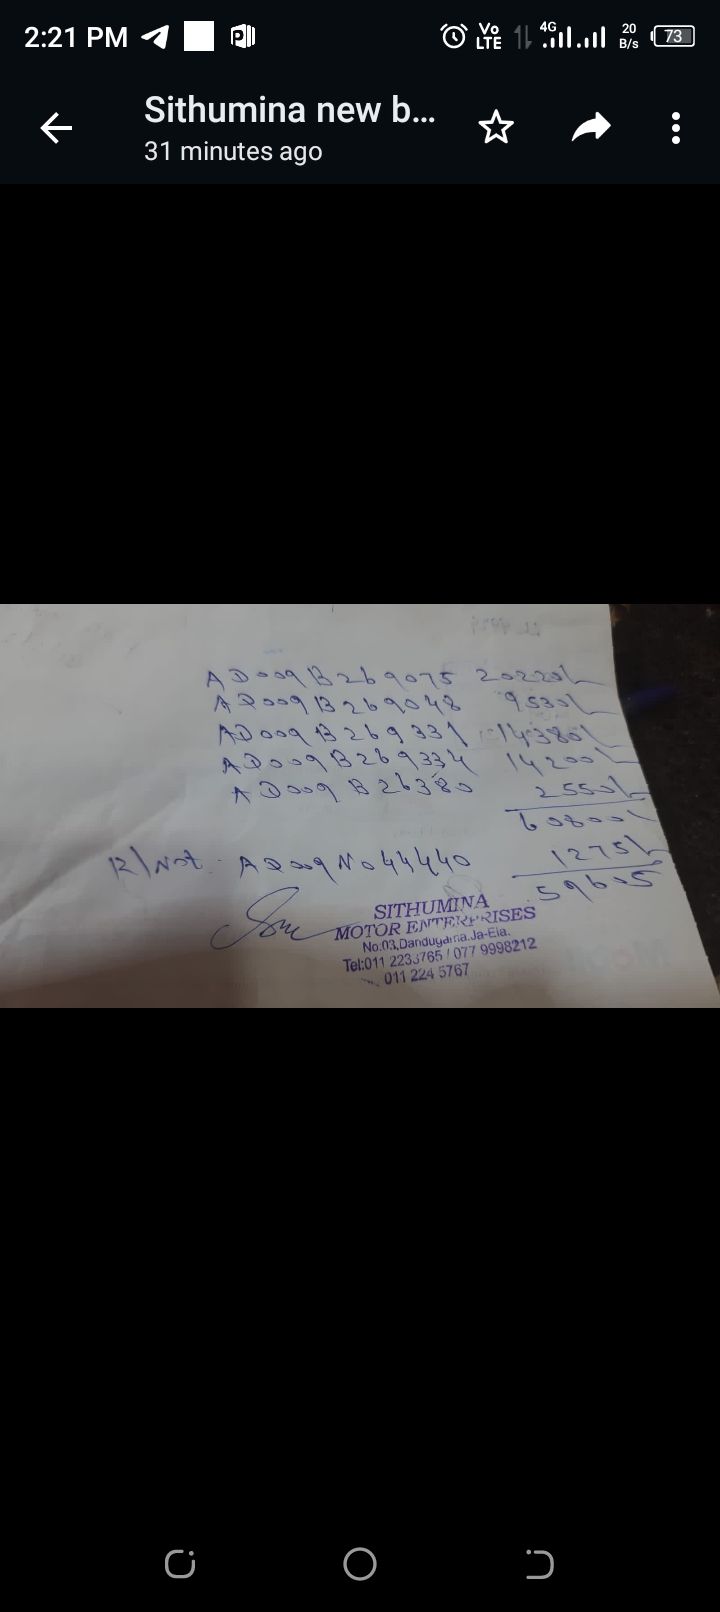 2:21 PM
Vo LTE 4G 20 B/s 73
Sithumina new b...
31 minutes ago
AD009B269075 20220/-
AD009B269048 9530/-
AD009B269331 14380/-
AD009B269334 14200/-
AD009B26380 2550/-
60800/-
R/Not - AD009N044440 1275/-
59605
SITHUMINA
MOTOR ENTERPRISES
No.03,Dandugama.Ja-Ela.
Tel:011 2233765 / 077 9998212
011 224 5767